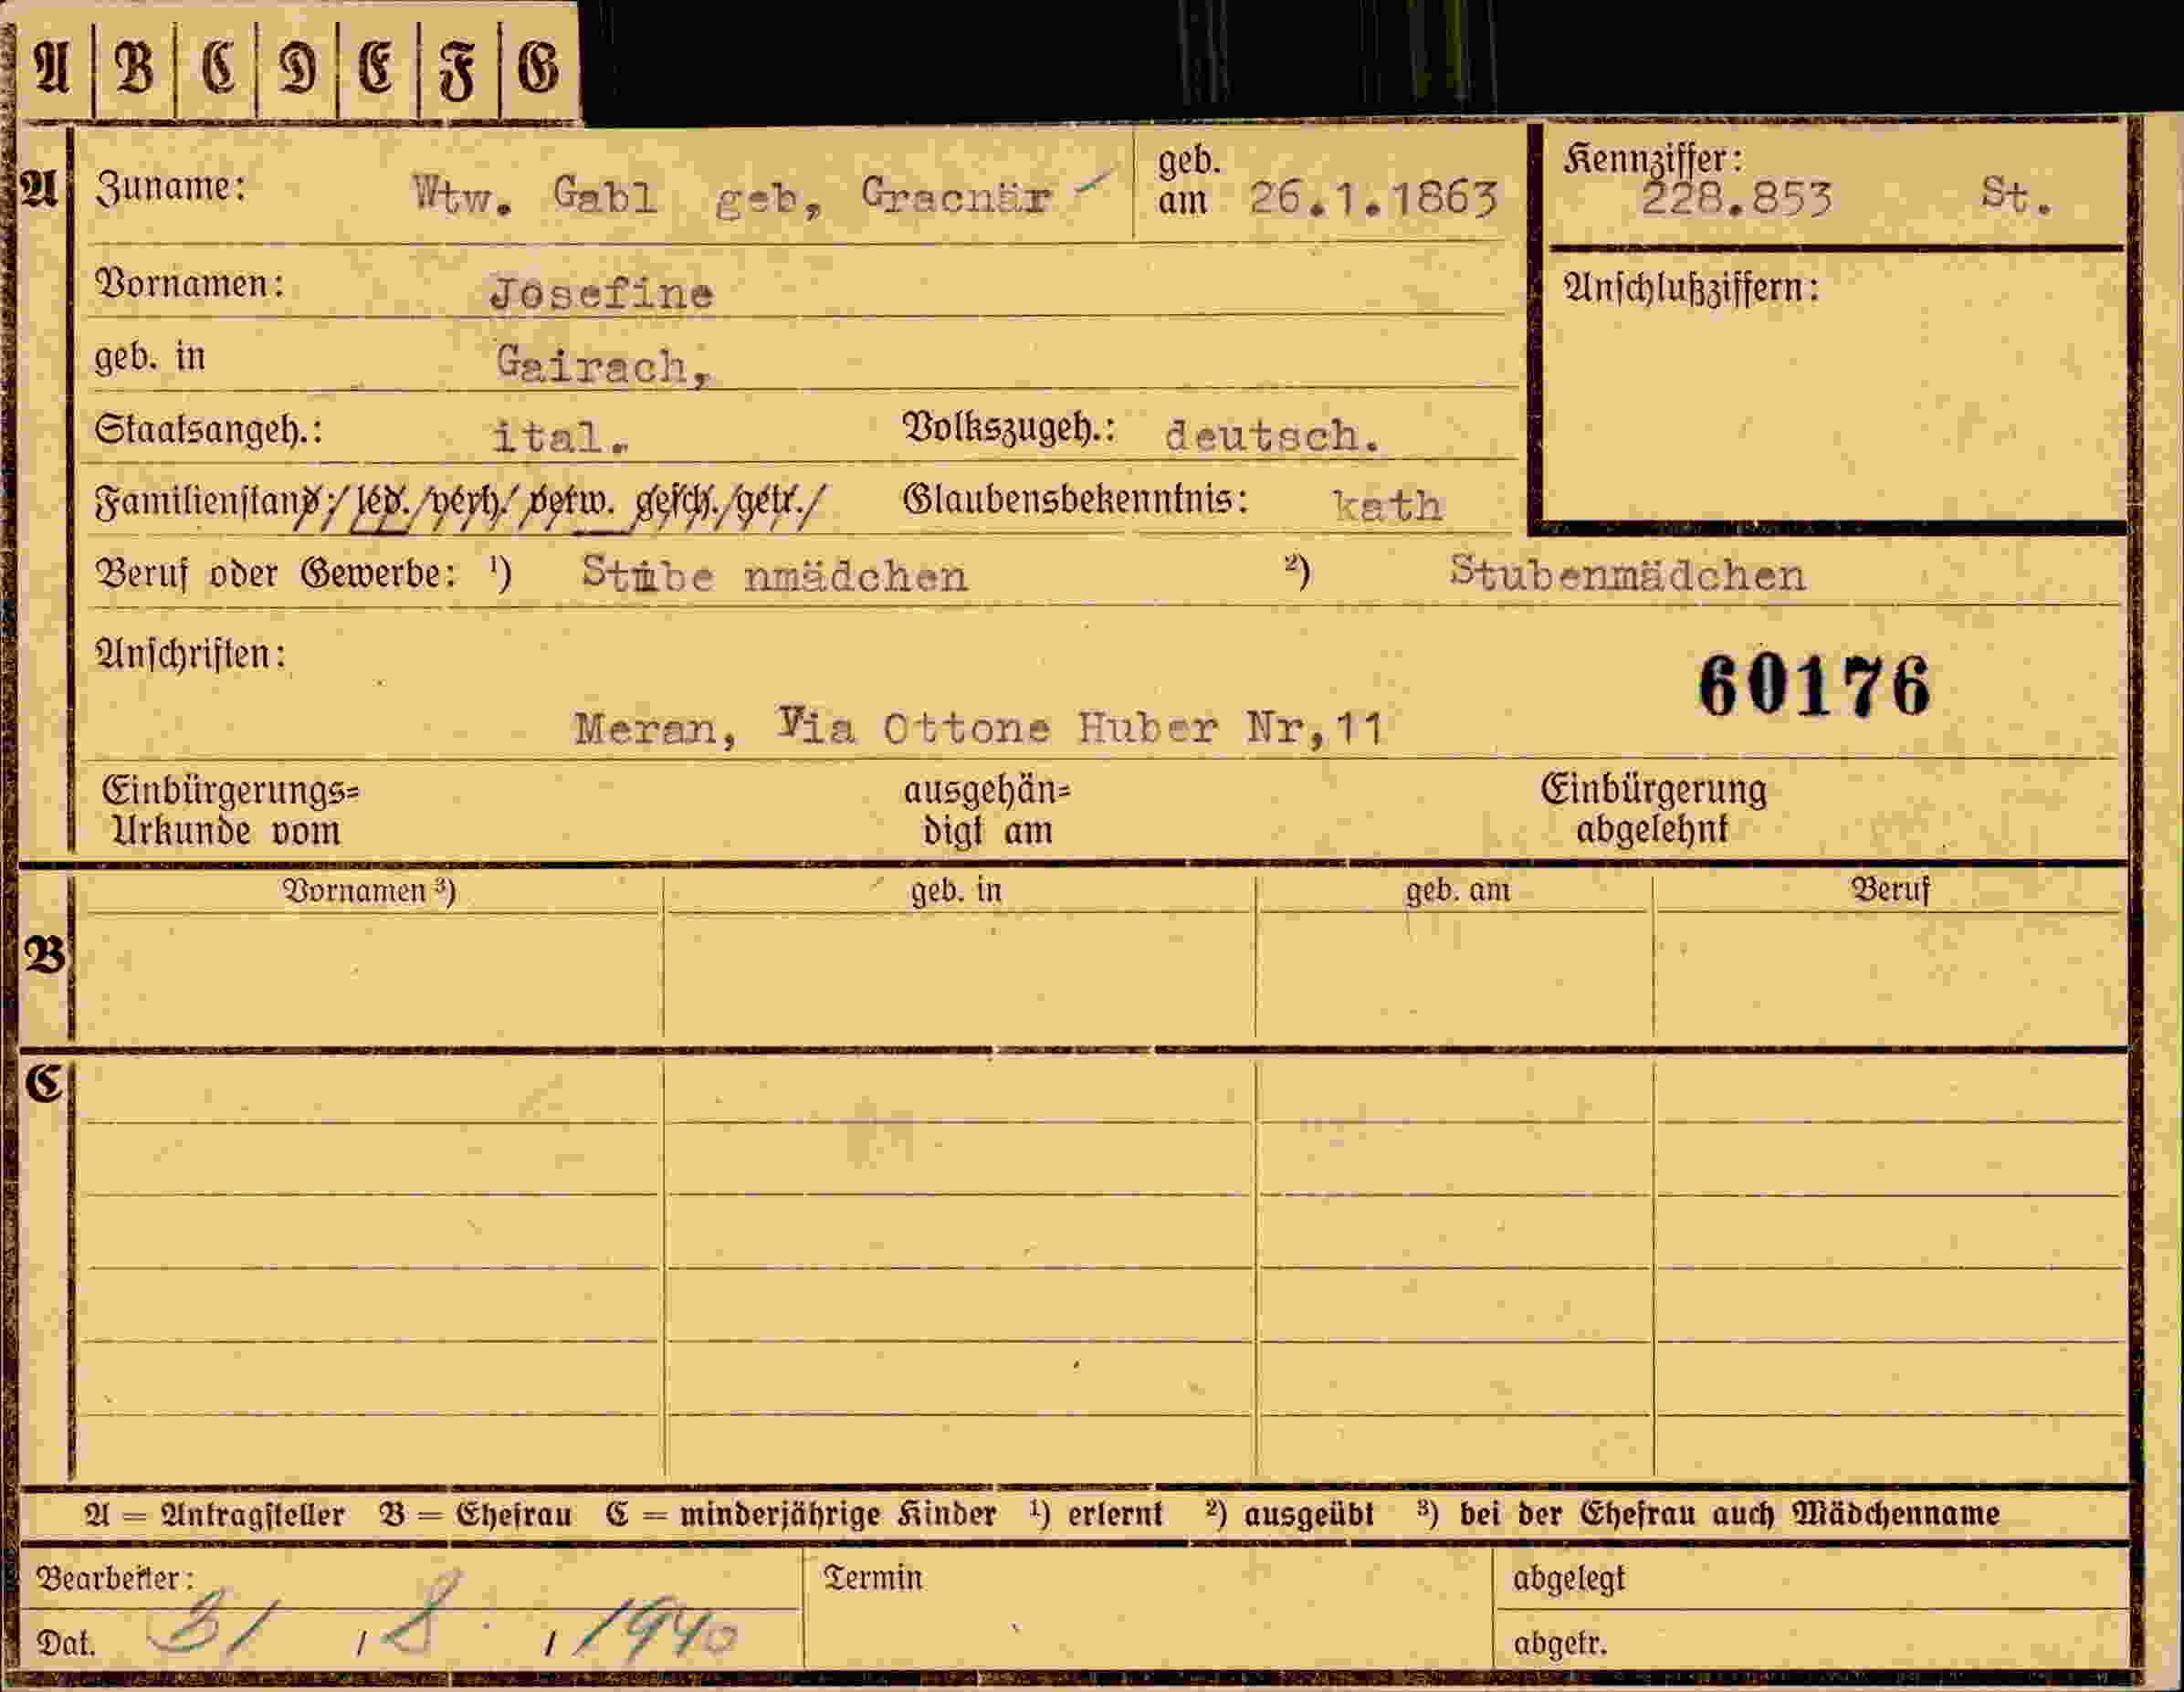 A B C D E F G
A Zuname: Wtw. Gabl geb, Gracnär geb. am 26.1.1863 Kennziffer: 228.853 St.
Vornamen: Josefine Anschlußziffern:
geb. in Gairach,
Staatsangeh.: ital. Volkszugeh.: deutsch.
Familienstand:/led./verh./verw. gesch./getr./ Glaubensbekenntnis: kath
Beruf oder Gewerbe: ¹) Stube nmädchen ²) Stubenmädchen
Anschriften: 60176
Meran, Via Ottone Huber Nr,11
Einbürgerungs= ausgehän= Einbürgerung
Urkunde vom digt am abgelehnt
Vornamen ³) geb. in geb. am Beruf
B
C
A = Antragsteller B = Ehefrau C = minderjährige Kinder ¹) erlernt ²) ausgeübt ³) bei der Ehefrau auch Mädchenname
Bearbeiter: Termin abgelegt
Dat. 31 / 8 / 1940 abgetr.